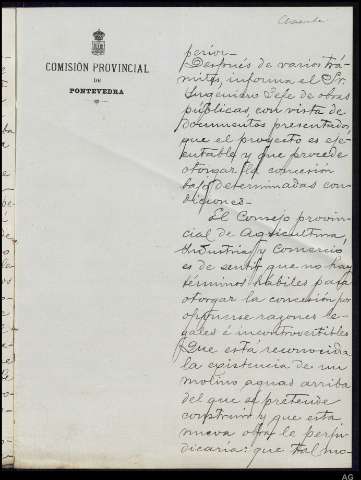 COMISIÓN PROVINCIAL
DE
PONTEVEDRA
perior.-
Después de varios trá-
mites, informa el Sr.
Ingeniero Jefe de obras
públicas, con vista de
documentos presentados,
que el proyecto es eje-
cutable y que procede
otorgar la concesión
bajo determinadas con-
diciones.-
El Consejo provin-
cial de Agricultura,
Industria y Comercio
es de sentir que no hay
términos hábiles para
otorgar la concesión por
oponerse razones le-
gales é incontrovertibles
Que está reconocida
la existencia de un
molino aguas arriba
del que se pretende
construir y que esta
nueva obra le perju-
dicaria: que tal mo-
AG